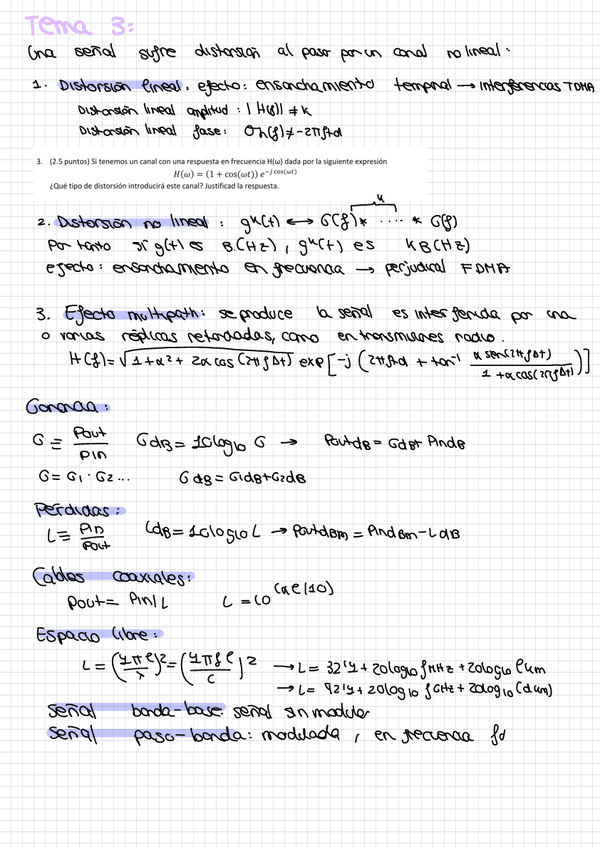 Tema 3:
Una señal sufre distorsión al pasar por un canal no lineal:
1. Distorsión lineal, efecto: ensanchamiento temporal → interferencias TDMA
Distorsión lineal amplitud: |H(f)| ≠ k
Distorsión lineal fase: θh(f) ≠ -2πftd
3. (2.5 puntos) Si tenemos un canal con una respuesta en frecuencia H(ω) dada por la siguiente expresión
H(ω) = (1 + cos(ωt)) e^{-j cos(ωt)}
¿Qué tipo de distorsión introducirá este canal? Justificad la respuesta.
k
2. Distorsión no lineal: g^k(t) ↔ G(f) * ···· * G(f)
Por tanto si g(t) es B(Hz), g^k(t) es kB(Hz)
efecto: ensanchamiento en frecuencia → perjudical FDMA
3. Efecto multipath: se produce la señal es interferida por una
o varias réplicas retardadas, como en transmisiones radio.
H(f) = √(1+α²+2α cos(2πfΔt)) exp[-j(2πftd + tan⁻¹ (α sen(2πfΔt) / 1+α cos(2πfΔt)))]
Ganancia:
G = Pout/Pin GdB = 10log10 G → PoutdB = GdB+ PindB
G = G1 · G2 ... GdB = G1dB+G2dB
Pérdidas:
L = Pin/Pout LdB = 10log10 L → PoutdBm = PindBm - LdB
Cables coaxiales:
Pout = Pin/L L = 10^(αl/10)
Espacio libre:
L = (4πl/λ)² = (4πfl/c)² → L = 32'4 + 20log10 fMHz + 20log10 lkm
→ L = 92'4 + 20log10 fGHz + 20log10 (dkm)
Señal banda-base: señal sin modular
Señal paso-banda: modulada, en frecuencia